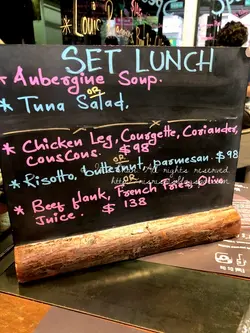 Louis
SET LUNCH
* Aubergine Soup.
OR
* Tuna Salad.
* Chicken Leg, Courgette, Coriander,
CousCous. $98
OR
* Risotto, butternut, parmesan. $98
OR
* Beef flank, French Fries, Olive
Juice. $ 138
All rights reserved